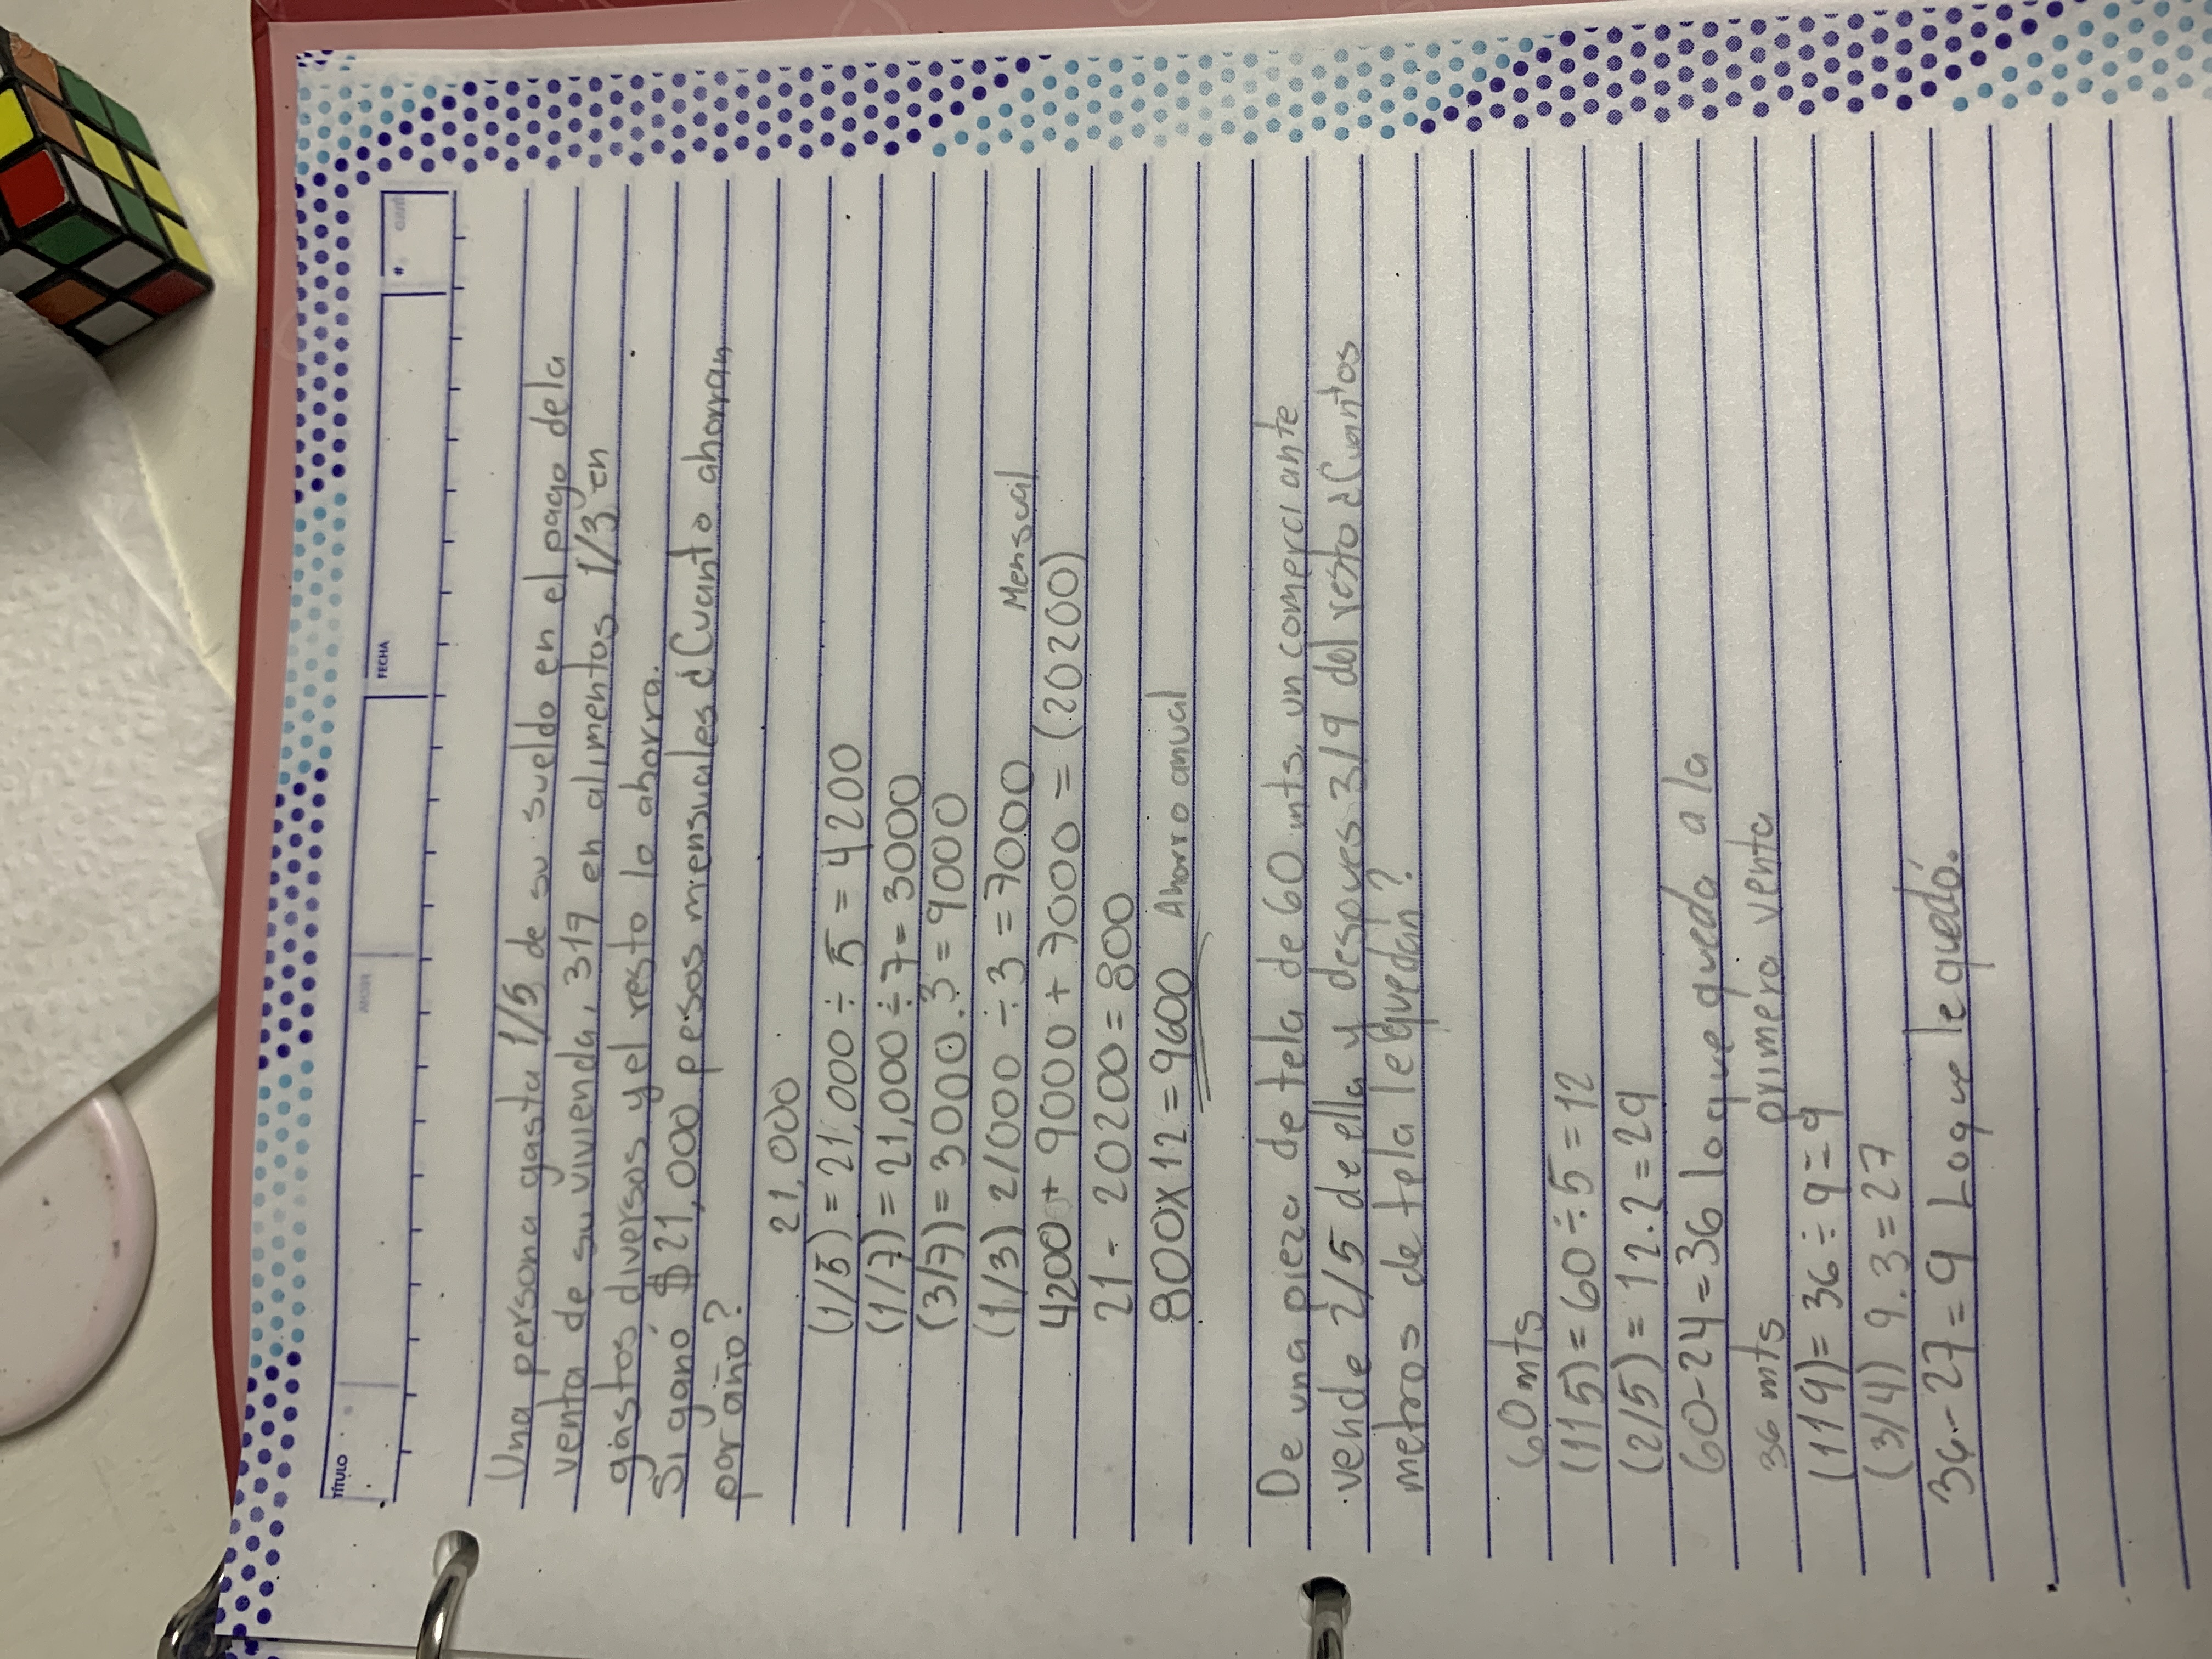 TÍTULO
FECHA
#
Una persona gasta 1/5 de su sueldo en el pago de la
venta de su vivienda, 3/7 en alimentos 1/3 en
gastos diversos y el resto lo ahorra.
Si ganó $21,000 pesos mensuales ¿Cuanto ahorran
por año?
21,000
(1/5) = 21,000 ÷ 5 = 4200
(1/7) = 21,000 ÷ 7 = 3000
(3/7) = 3000.3 = 9000
(1/3) 21000 ÷ 3 = 7000
Mensual
4200 + 9000 + 7000 = (20200)
21 - 20200 = 800
800x12 = 9600 Ahorro anual
De una pieza de tela de 60 mts, un comerciante
vende 2/5 de ella y despoves 3/9 del resto ¿Cuantos
metros de tela le quedan?
60 mts
(1/5) = 60 ÷ 5 = 12
(2/5) = 12.2 = 24
60-24 = 36 lo que queda a la
primera venta
36 mts
(1/9) = 36 ÷ 9 = 9
(3/4) 9.3 = 27
36 - 27 = 9 Lo que le quedó.